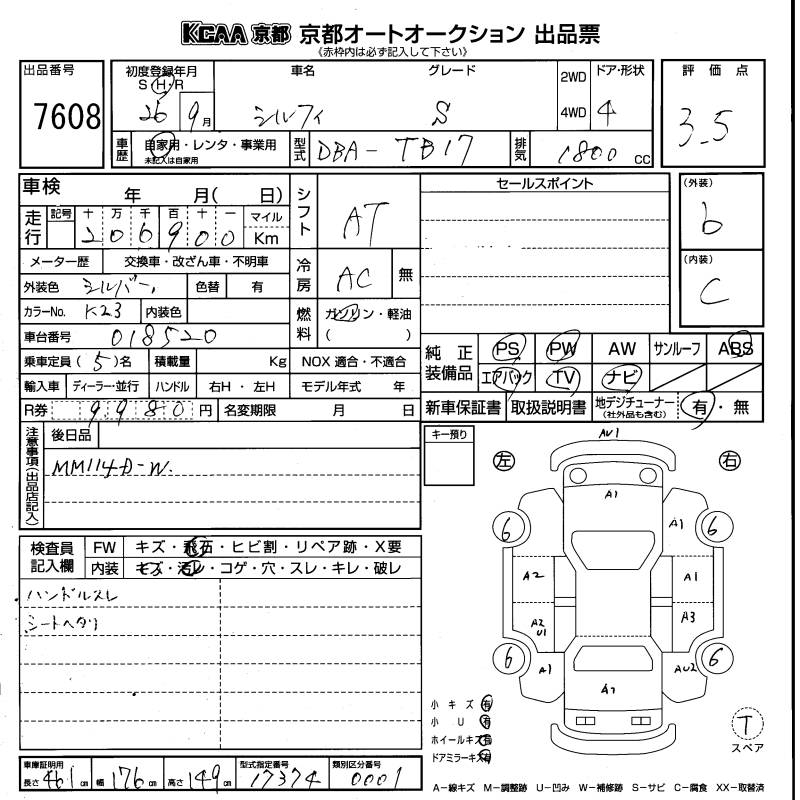 KCAA 京都 京都オートオークション 出品票
《赤枠内は必ず記入して下さい》
出品番号 7608
初度登録年月 S・H・R 26 9月
車名 シルフィ
グレード S
2WD 4WD
ドア・形状 4
評価点 3.5
車歴 自家用・レンタ・事業用 未記入は自家用
型式 DBA-TB17
排気 1800 CC
車検 年 月( 日)
シフト AT
セールスポイント
(外装) b
走行 記号 十 万 千 百 十 一 マイル Km
206900
(内装) C
メーター歴 交換車・改ざん車・不明車
冷房 AC 無
外装色 シルバー 色替 有
カラーNo. K23 内装色
燃料 ガソリン・軽油 ( )
車台番号 018520
純正装備品 PS PW AW サンルーフ ABS
エアバック TV ナビ
乗車定員(5)名 積載量 Kg NOX 適合・不適合
輸入車 ディーラー・並行 ハンドル 右H・左H モデル年式 年
R券 9980円 名変期限 月 日
新車保証書 取扱説明書 地デジチューナー (社外品も含む) 有・無
注意事項(出品店記入)
後日品
MM114D-W.
キー預り
左 右
AU1
A1
A1
6 6
A2 A1
A2 U1 A3
6 6
A1 AU2
A1
検査員記入欄
FW キズ・飛石・ヒビ割・リペア跡・X要
内装 キズ・汚レ・コゲ・穴・スレ・キレ・破レ
ハンドルスレ
シートヘタリ
小キズ 有
小U 有
ホイールキズ 有
ドアミラーキズ 有
T スペア
車庫証明用 長さ 461cm 幅 176cm 高さ 149cm
型式指定番号 17374
類別区分番号 0001
A-線キズ M-調整跡 U-凹み W-補修跡 S-サビ C-腐食 XX-取替済